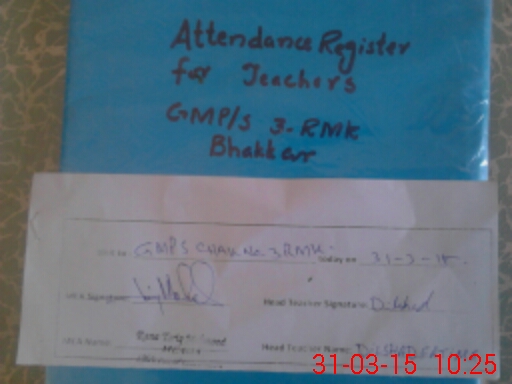 Attendance Register
for Teachers
GMP/s 3-RMK
Bhakkar
GMPS CHAK No. 3 RMK today on 31-3-15
Signature Head Teacher Signature Dilshad
Name Head Teacher Name
31-03-15 10:25